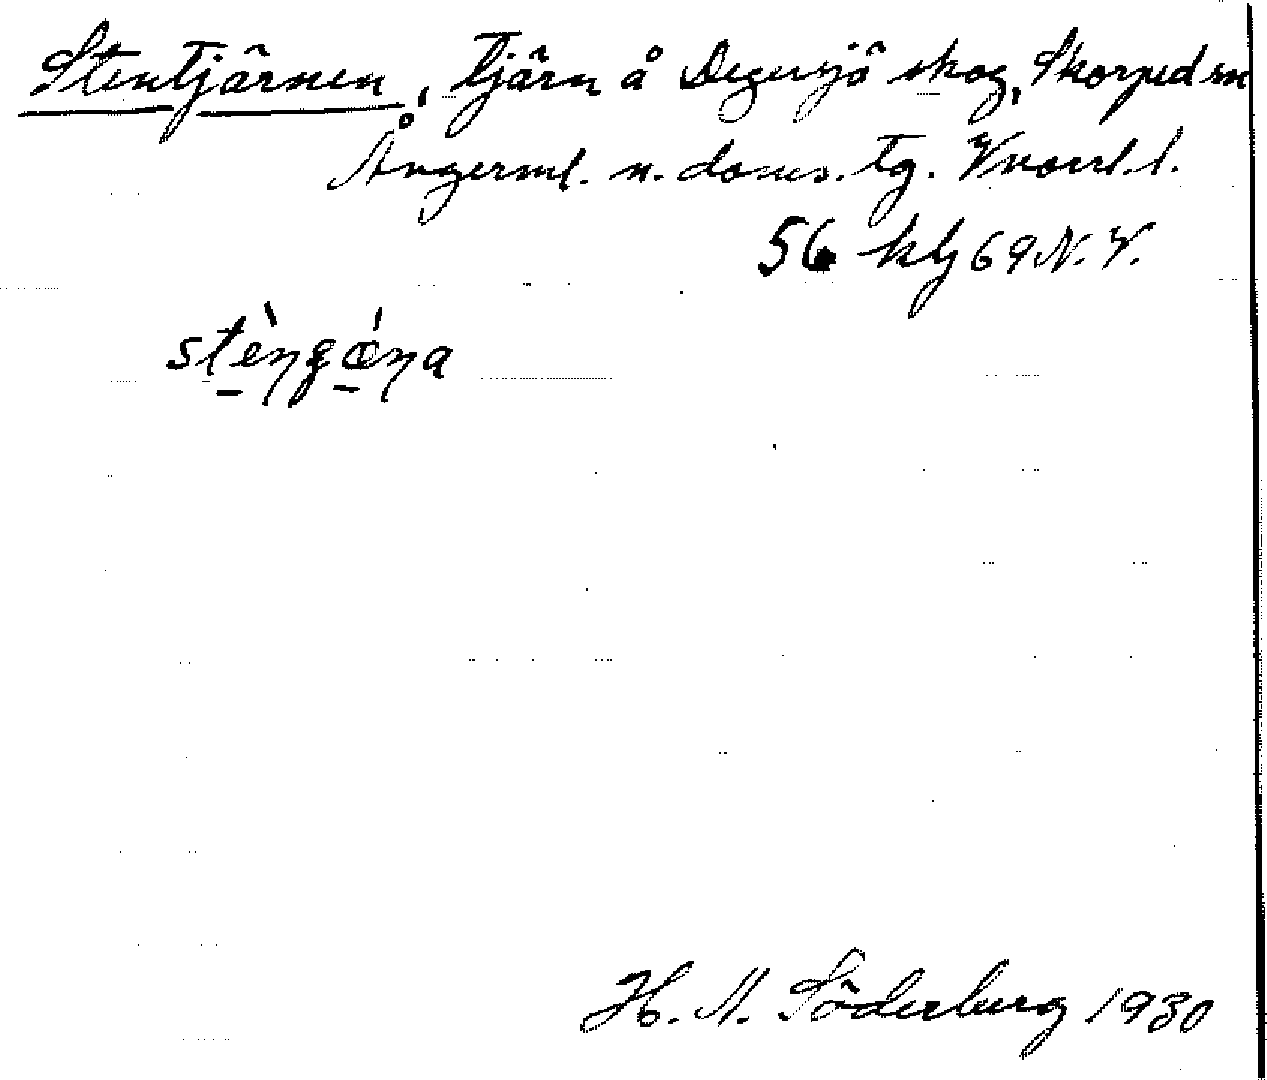 Stentjärnen, tjärn å Degersjö skog, Skorped sn
Ångerml. n. doms. tg. Vnorrl. l.
56 klj 69 N.V.
stèngǿna
H. M. Söderberg 1930